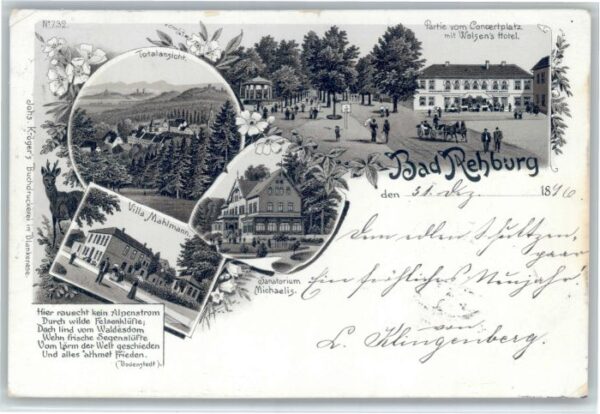 No 732.
Totalansicht.
Partie vom Concertplatz
mit Wolzen's Hotel.
Bad Rehburg
den 31. Dez. 1896
Villa Mahlmann.
Sanatorium
Michaelis.
Johs. Kröger's Buchdruckerei in Blankenese
Dem edlen Schultzen-
paar
Ein fröhliches Neujahr
von
L. Klingenberg.
Hier rauscht kein Alpenstrom
Durch wilde Felsenklüfte;
Doch lind vom Waldesdom
Wehn frische Segenslüfte
Vom Lärm der Welt geschieden
Und alles athmet Frieden.
(Bodenstedt)